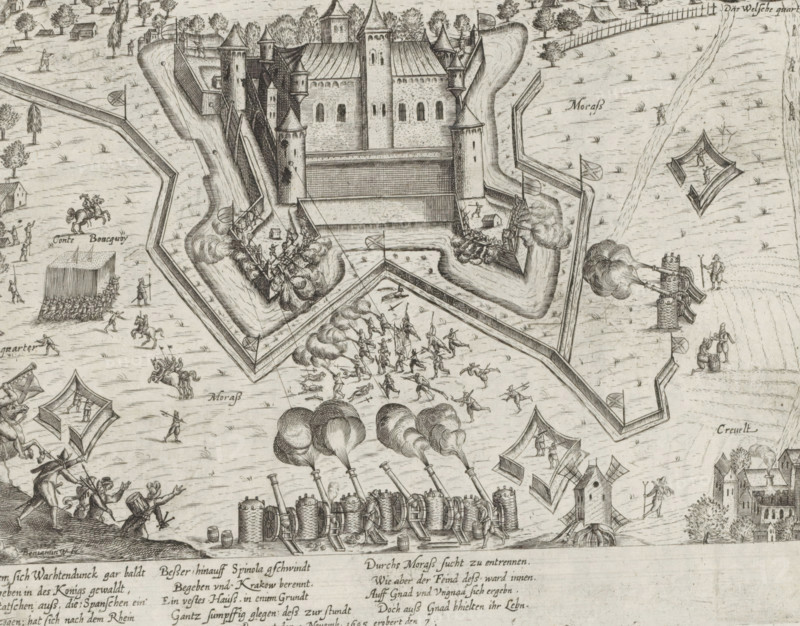 Das Welsche quart
Moraß
Conte Boucquoy
quarter
Moraß
Crevelt
sich Wachtendunck gar baldt
in des Königs gewaldt,
auß, die Spanschen ein
hat sich nach dem Rhein
Beßer hinauff Spinola gschwindt
Begeben vnd Krakow berennt.
Ein vestes Hauß, in einem Grundt
Gantz sumpffig glegen, deß zur stundt
Durchs Moraß sucht zu entrennen.
Wie aber der Feind deß ward innen.
Auff Gnad vnd Vngnad sich ergebn.
Doch auß Gnad bhielten ihr Lebn.
erobert den